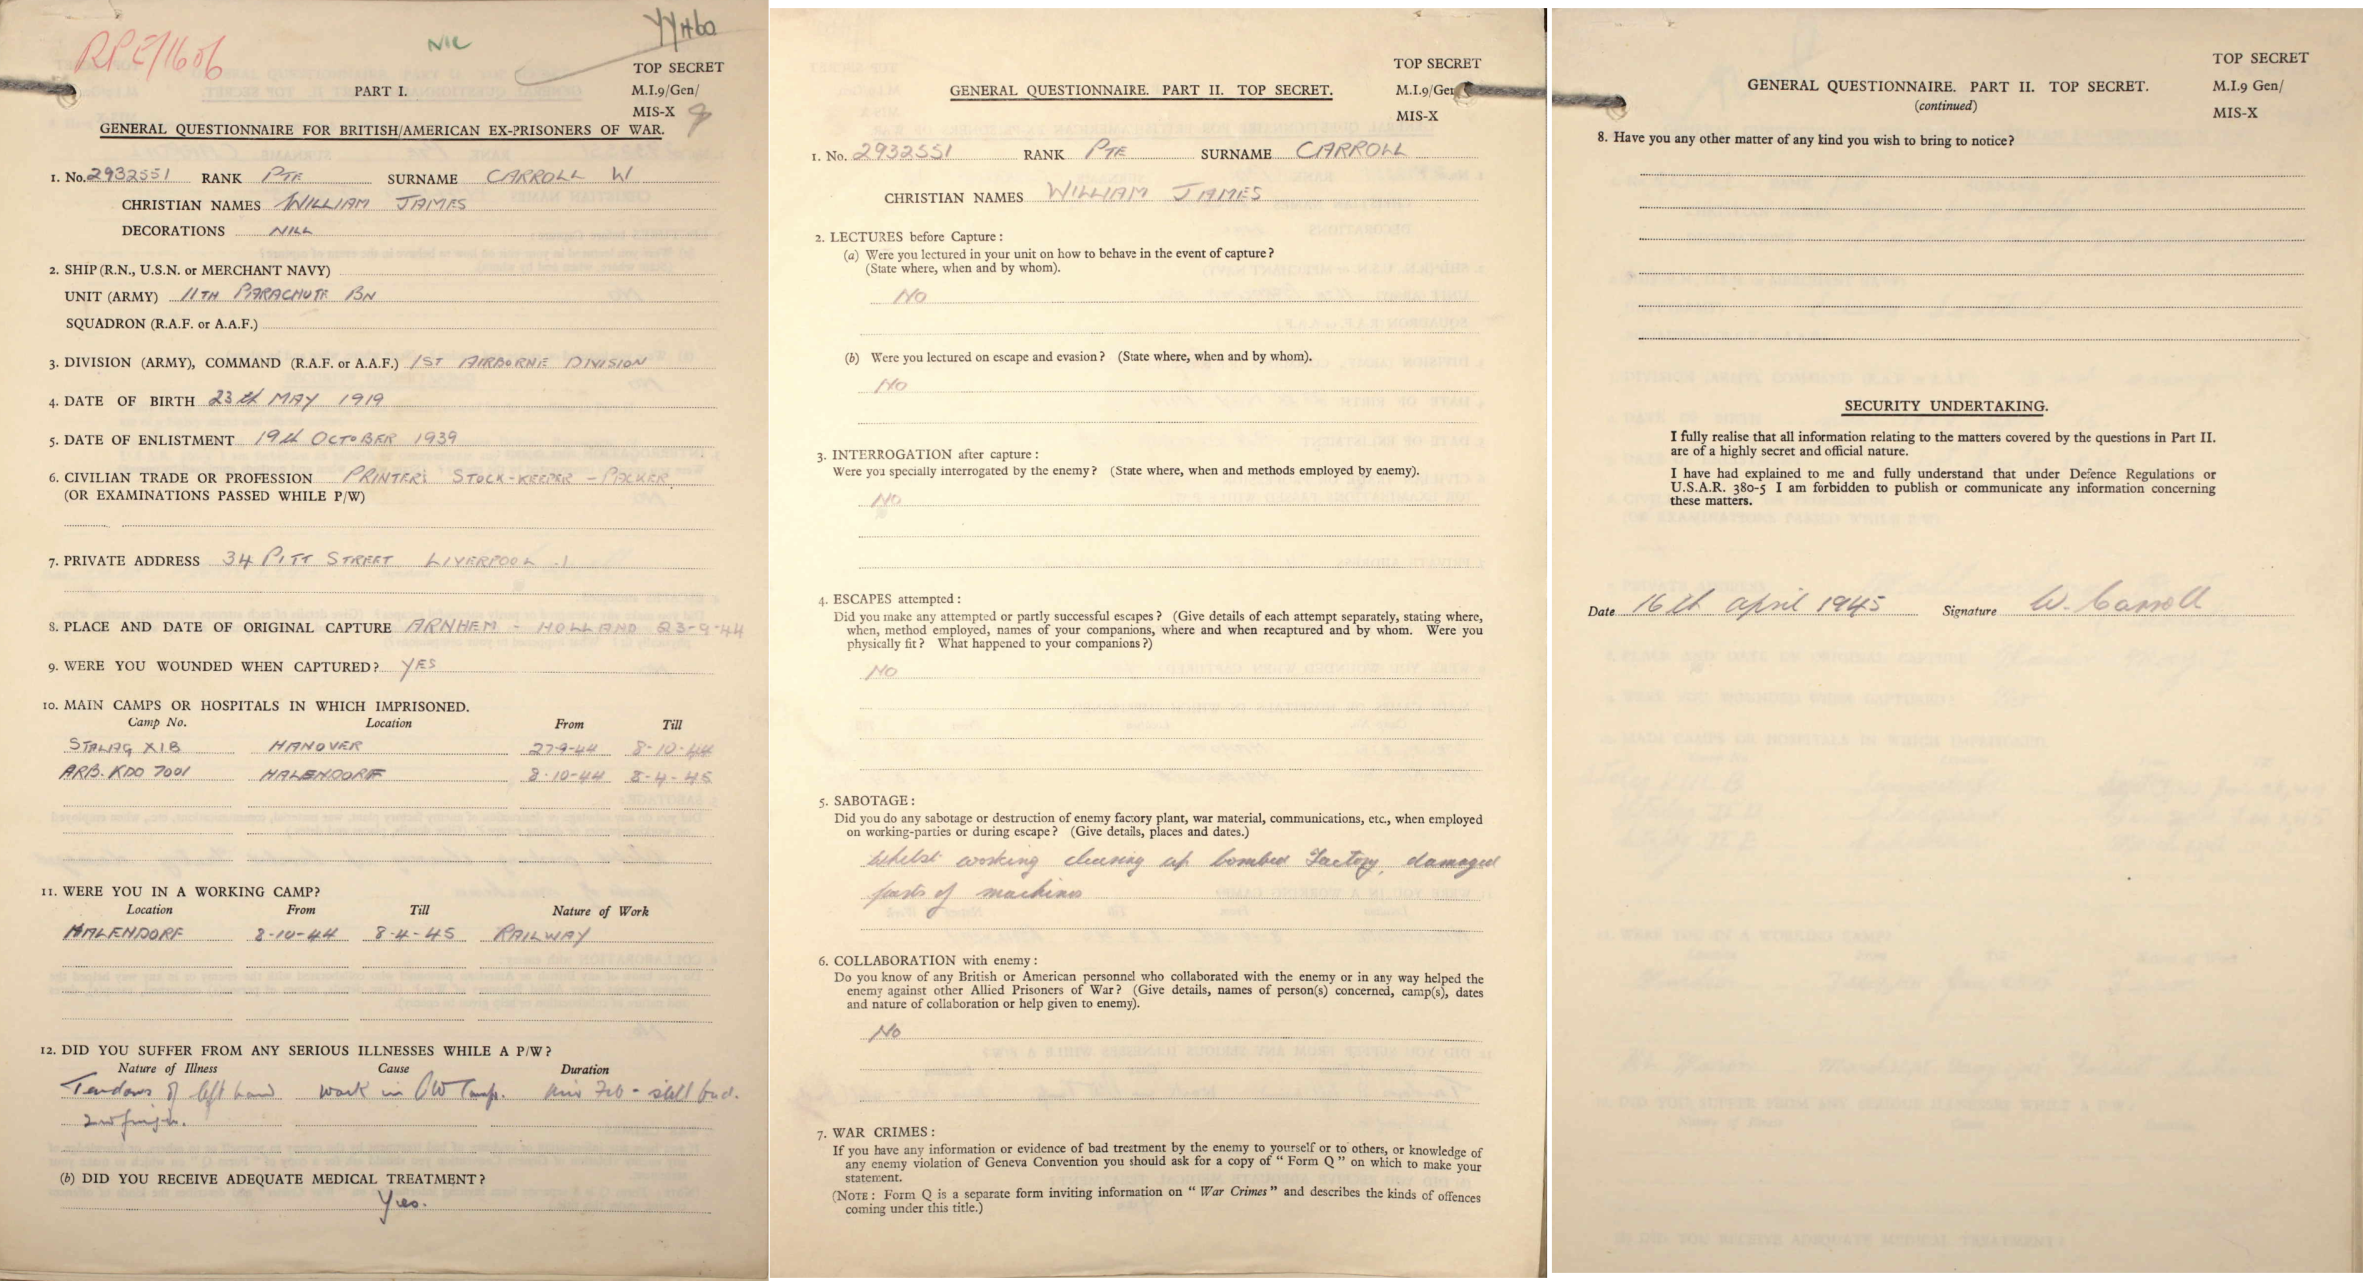 RPE/1606
NIL
TOP SECRET
PART I.
M.I.9/Gen/
MIS-X
GENERAL QUESTIONNAIRE FOR BRITISH/AMERICAN EX-PRISONERS OF WAR.
1. No. 2932551 RANK PTE SURNAME CARROLL W
CHRISTIAN NAMES WILLIAM JAMES
DECORATIONS NILL
2. SHIP (R.N., U.S.N. or MERCHANT NAVY)
UNIT (ARMY) 11TH PARACHUTE BN
SQUADRON (R.A.F. or A.A.F.)
3. DIVISION (ARMY), COMMAND (R.A.F. or A.A.F.) 1ST AIRBORNE DIVISION
4. DATE OF BIRTH 23th MAY 1919
5. DATE OF ENLISTMENT 19th OCTOBER 1939
6. CIVILIAN TRADE OR PROFESSION PRINTER: STOCK-KEEPER - PACKER
(OR EXAMINATIONS PASSED WHILE P/W)
7. PRIVATE ADDRESS 34 PITT STREET LIVERPOOL .1
8. PLACE AND DATE OF ORIGINAL CAPTURE ARNHEM - HOLLAND 23-9-44
9. WERE YOU WOUNDED WHEN CAPTURED? YES
10. MAIN CAMPS OR HOSPITALS IN WHICH IMPRISONED.
Camp No. Location From Till
STALAG XIB HANOVER 27-9-44 8-10-44
ARB. KDO 7001 HALENDORF 8-10-44 8-4-45
11. WERE YOU IN A WORKING CAMP?
Location From Till Nature of Work
HALENDORF 8-10-44 8-4-45 RAILWAY
12. DID YOU SUFFER FROM ANY SERIOUS ILLNESSES WHILE A P/W?
Nature of Illness Cause Duration
Tendons of left hand work in PW Camp. Feb - still bad.
(b) DID YOU RECEIVE ADEQUATE MEDICAL TREATMENT?
Yes.
TOP SECRET
GENERAL QUESTIONNAIRE. PART II. TOP SECRET.
M.I.9/Gen
MIS-X
1. No. 2932551 RANK PTE SURNAME CARROLL
CHRISTIAN NAMES WILLIAM JAMES
2. LECTURES before Capture:
(a) Were you lectured in your unit on how to behave in the event of capture?
(State where, when and by whom).
NO
(b) Were you lectured on escape and evasion? (State where, when and by whom).
NO
3. INTERROGATION after capture:
Were you specially interrogated by the enemy? (State where, when and methods employed by enemy).
NO
4. ESCAPES attempted:
Did you make any attempted or partly successful escapes? (Give details of each attempt separately, stating where,
when, method employed, names of your companions, where and when recaptured and by whom. Were you
physically fit? What happened to your companions?)
NO
5. SABOTAGE:
Did you do any sabotage or destruction of enemy factory plant, war material, communications, etc., when employed
on working-parties or during escape? (Give details, places and dates.)
Whilst working clearing up bombed factory, damaged
parts of machines
6. COLLABORATION with enemy:
Do you know of any British or American personnel who collaborated with the enemy or in any way helped the
enemy against other Allied Prisoners of War? (Give details, names of person(s) concerned, camp(s), dates
and nature of collaboration or help given to enemy).
NO
7. WAR CRIMES:
If you have any information or evidence of bad treatment by the enemy to yourself or to others, or knowledge of
any enemy violation of Geneva Convention you should ask for a copy of "Form Q" on which to make your
statement.
(NOTE: Form Q is a separate form inviting information on "War Crimes" and describes the kinds of offences
coming under this title.)
TOP SECRET
GENERAL QUESTIONNAIRE. PART II. TOP SECRET.
M.I.9 Gen/
(continued)
MIS-X
8. Have you any other matter of any kind you wish to bring to notice?
SECURITY UNDERTAKING.
I fully realise that all information relating to the matters covered by the questions in Part II.
are of a highly secret and official nature.
I have had explained to me and fully understand that under Defence Regulations or
U.S.A.R. 380-5 I am forbidden to publish or communicate any information concerning
these matters.
Date 16th april 1945 Signature W. Carroll